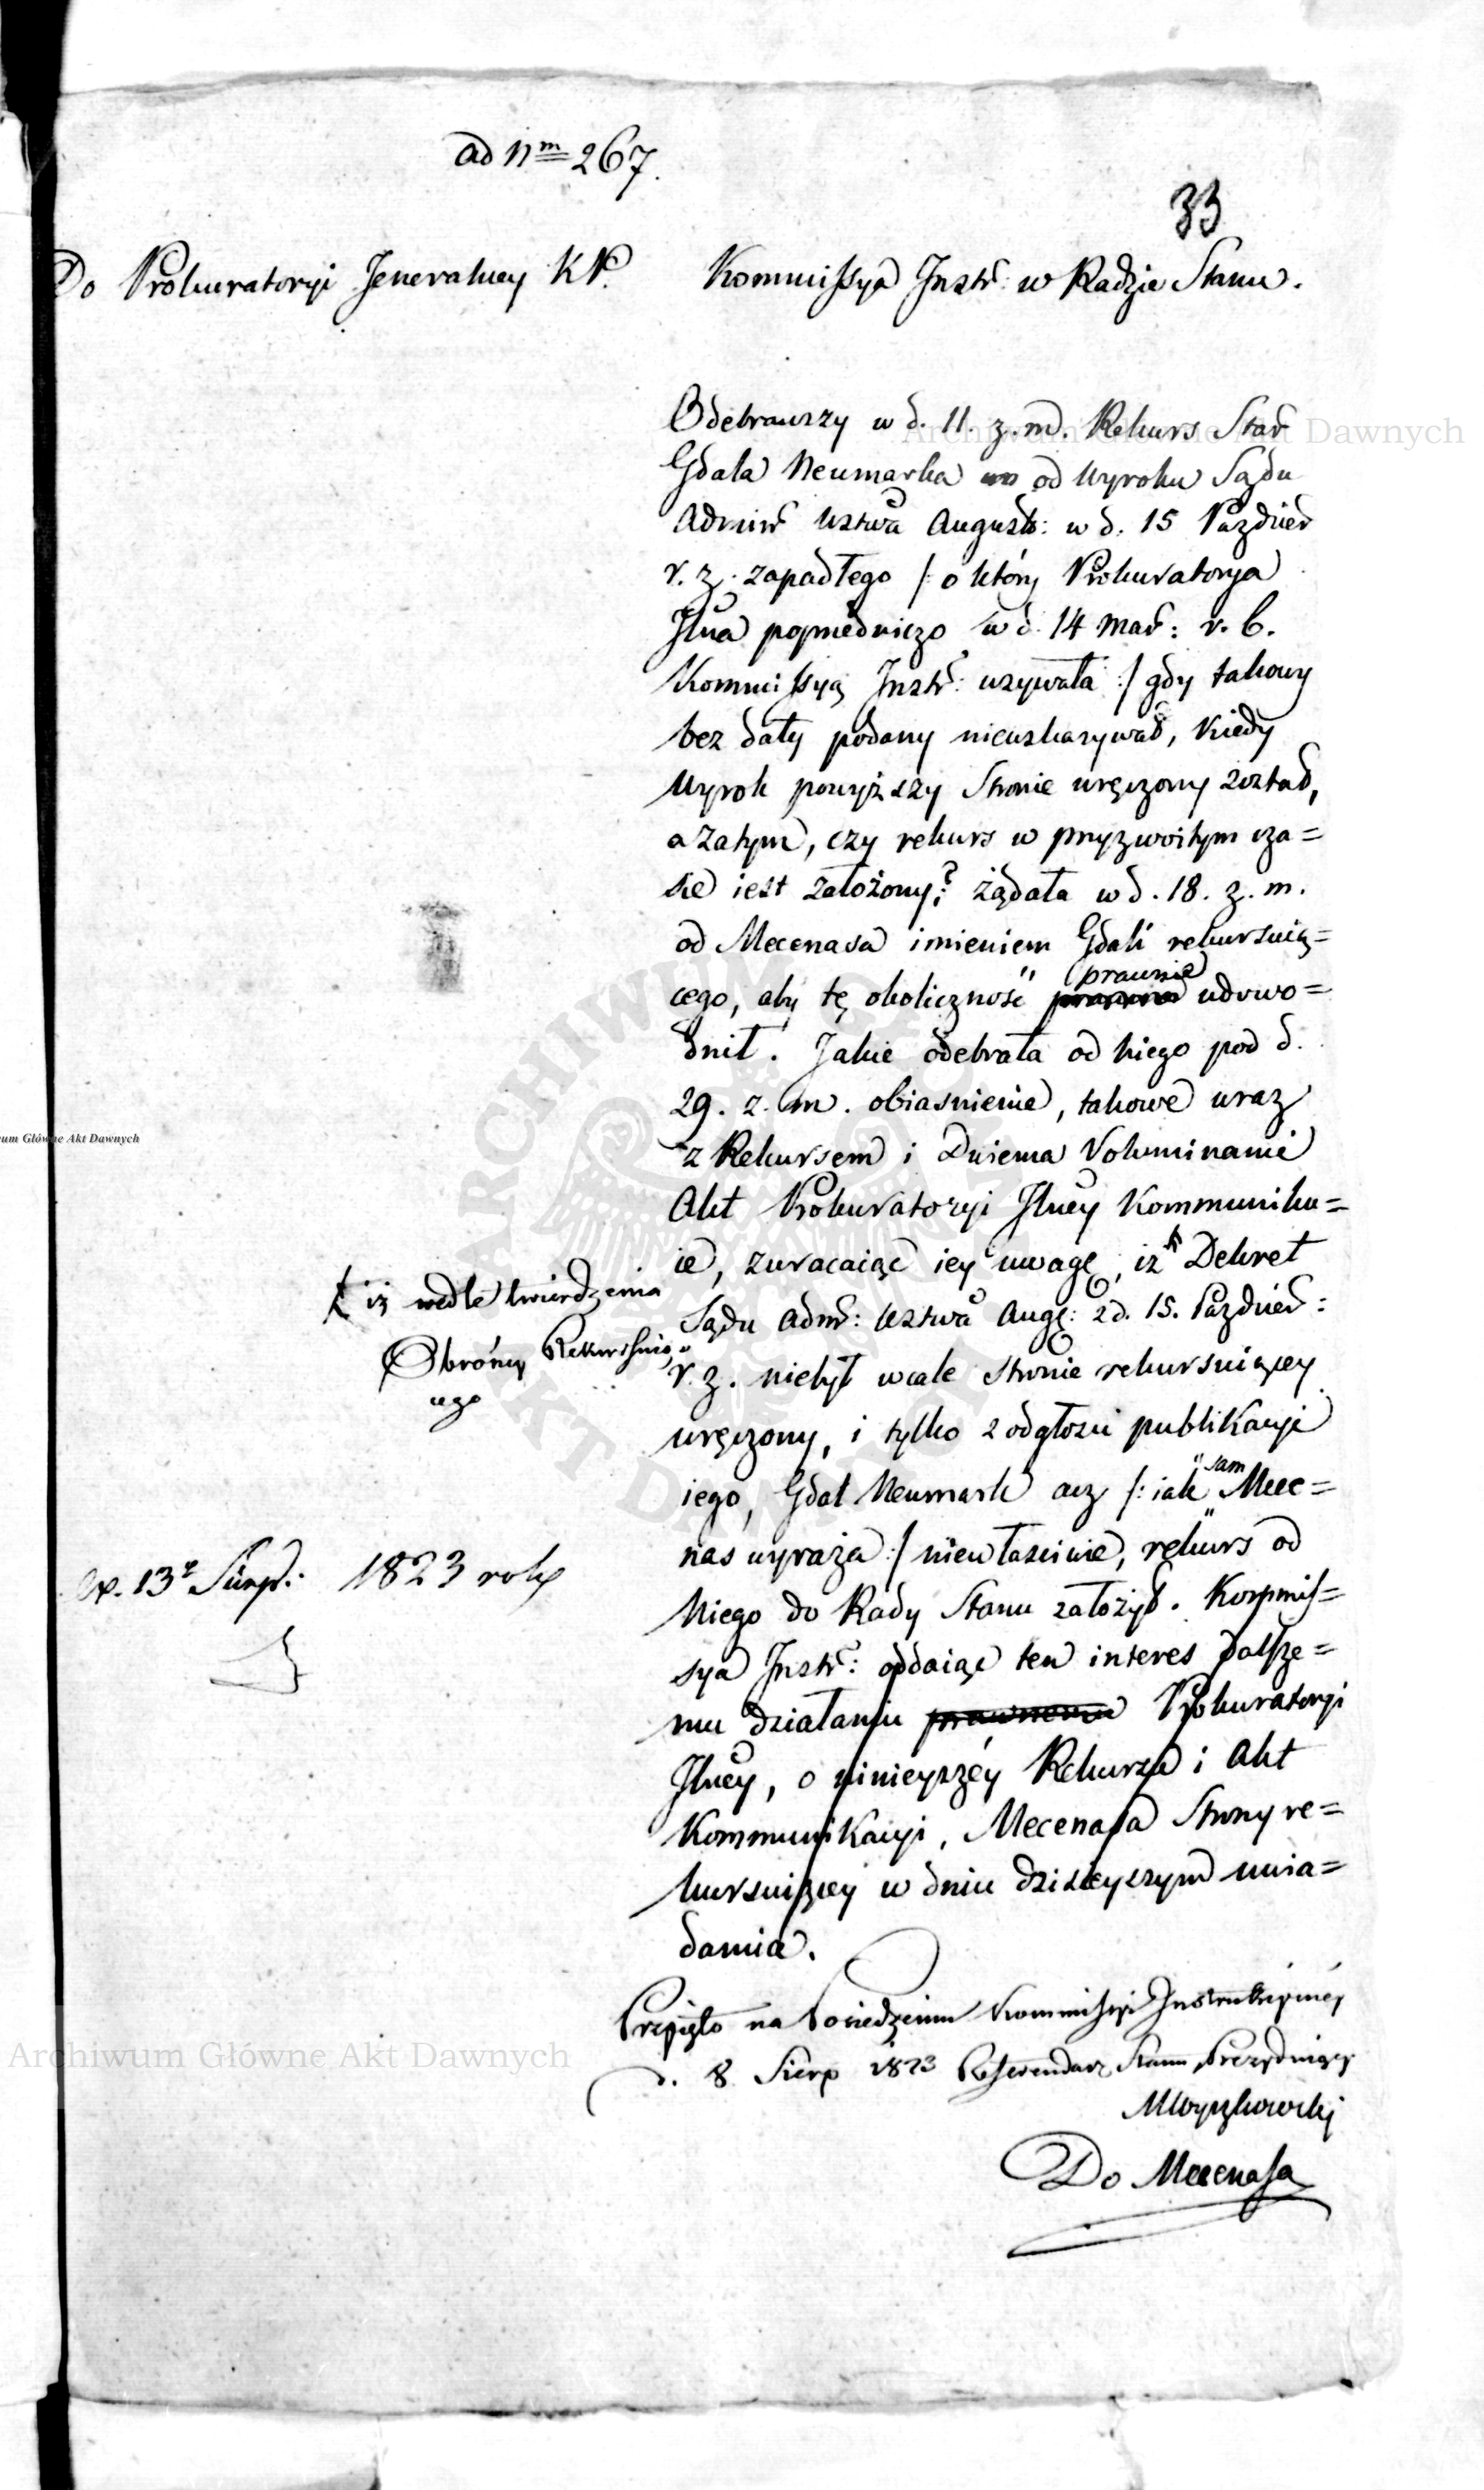 ad Nm 267.
33
Do Prokuratoryi Jeneralney KP.
Kommissya Instr: w Radzie Stanu.
Odebrawszy w d. 11. z. m. Rekurs Star
Gdala Neumarka od Wyroku Sądu
Admin Wztwa August: w d. 15 Pazdzier
r. z. zapadłego /: o który Prokuratorya
Jlna poprzedniczo w d. 14 Mar: r. b.
Kommissyą Instr: wzywała :/ gdy takowy
bez daty podany nieuskazywał, kiedy
Wyrok powyższy Stronie wręczony został,
a zatym, czy rekurs w przyzwoitym cza=
sie iest założony; żądała w d. 18. z. m.
od Mecenasa imieniem Gdali rekursuią=
cego, aby tę okoliczność prawnie udowo=
dnił. Jakie odebrała od niego pod d.
29. z. m. obiasnienie, takowe wraz
z Rekursem i Dwiema Voluminami
Akt Prokuratoryi Jlney Kommuniku=
ie, zwracaiąc iey uwagę, iż Dekret
iż wedle twierdzenia
Obrońcy Rekursuią=
cego
Sądu Adm: Wztwa Aug: z d. 15. Pazdzier:
r. z. niebył wcale stronie rekursuiącey
wręczony, i tylko z odgłosu publikacyi
iego, Gdal Neumark acz /: iak sam Mece=
nas wyraża :/ niewłaściwie, rekurs od
Niego do Rady Stanu założył. Kommis=
sya Instr: oddaiąc ten interes dalsze=
mu działaniu prawnemu Prokuratoryi
Jlney, o ninieyszéy Rekursu i Akt
Kommunikacyi, Mecenasa Strony re=
kursuiącey w dniu dzisieyszym uwia=
damia.
Ex. 13 Sierp: 1823 roku
Przyięto na Posiedzeniu Kommissyi Instrukcyinéy
d. 8 Sierp 1823 Referendarz Stanu Prezyduiący
MWyszkowski
Do Mecenasa
Archiwum Główne Akt Dawnych
Archiwum Główne Akt Dawnych
um Główne Akt Dawnych
ARCHIWUM
AKT DAWNYCH